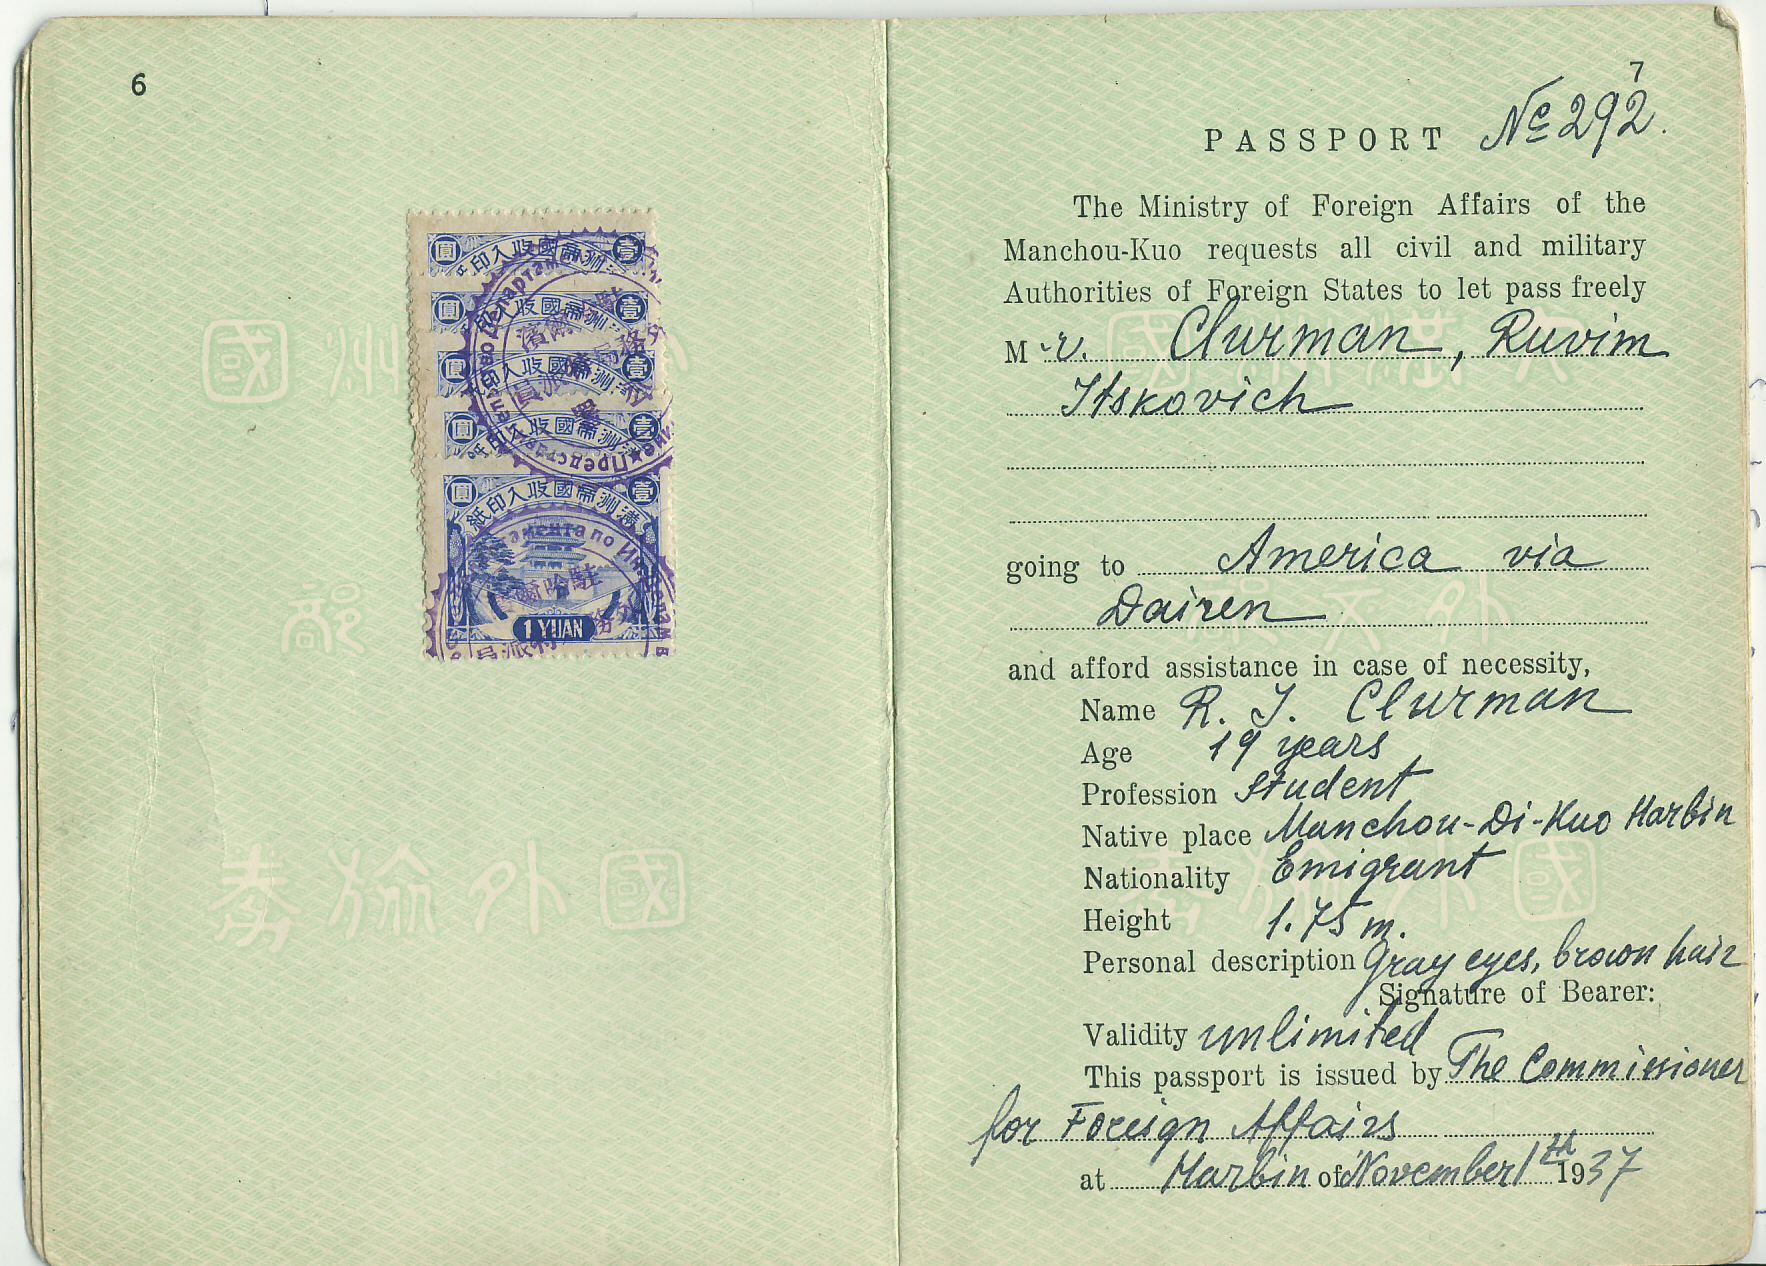 6
圓 滿洲帝國收入印紙 壹
圓 滿洲帝國收入印紙 壹
圓 滿洲帝國收入印紙 壹
圓 滿洲帝國收入印紙 壹
圓 滿洲帝國收入印紙 壹
1 YUAN
7
PASSPORT № 292.
The Ministry of Foreign Affairs of the
Manchou-Kuo requests all civil and military
Authorities of Foreign States to let pass freely
M r. Clurman, Ruvim
Itskovich
going to America via
Dairen
and afford assistance in case of necessity,
Name R. I. Clurman
Age 19 years
Profession Student
Native place Manchou-Di-Kuo Harbin
Nationality Emigrant
Height 1.75 m.
Personal description Gray eyes, brown hair
Signature of Bearer:
Validity unlimited
This passport is issued by The Commissioner
for Foreign Affairs
at Harbin of November 1th 1937